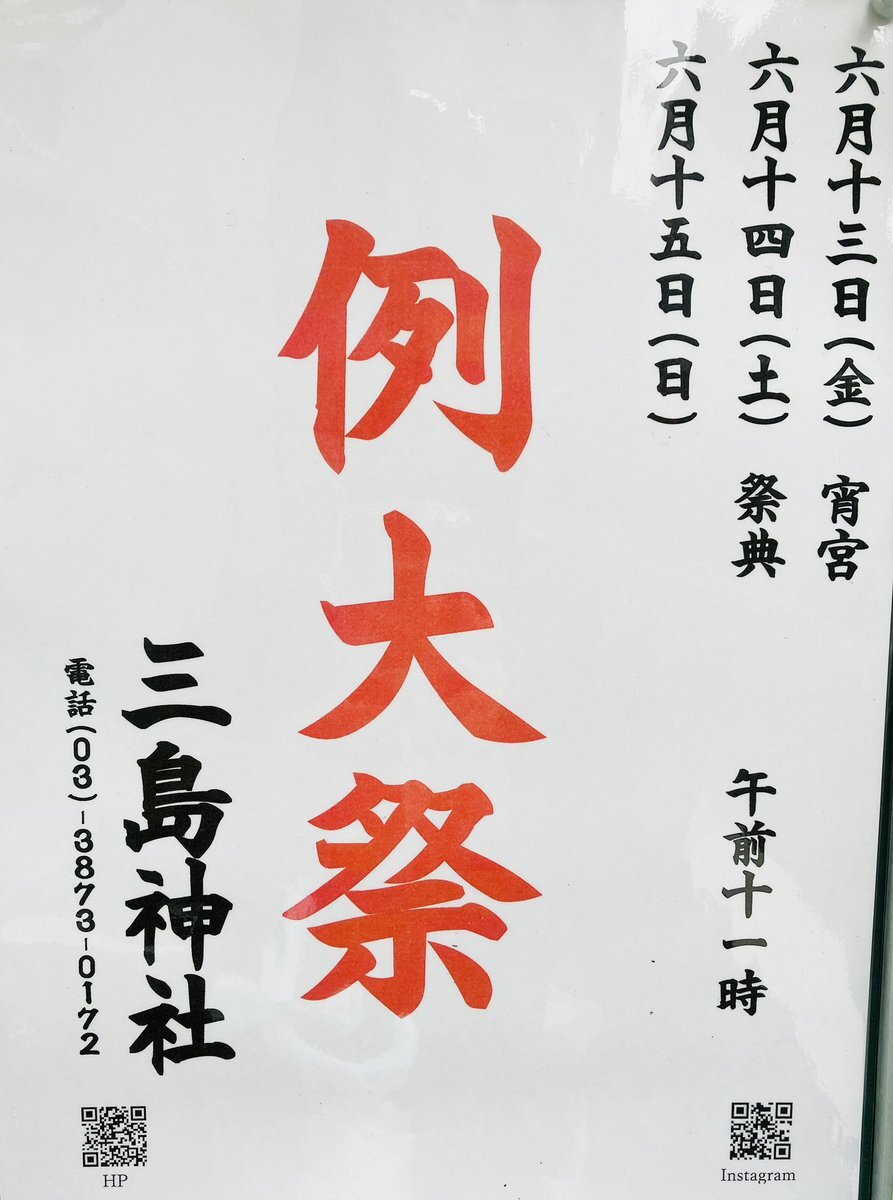 六月十三日(金) 宵宮
六月十四日(土) 祭典 午前十一時
六月十五日(日)
例大祭
三島神社
電話(03)-3873-0172
HP
Instagram